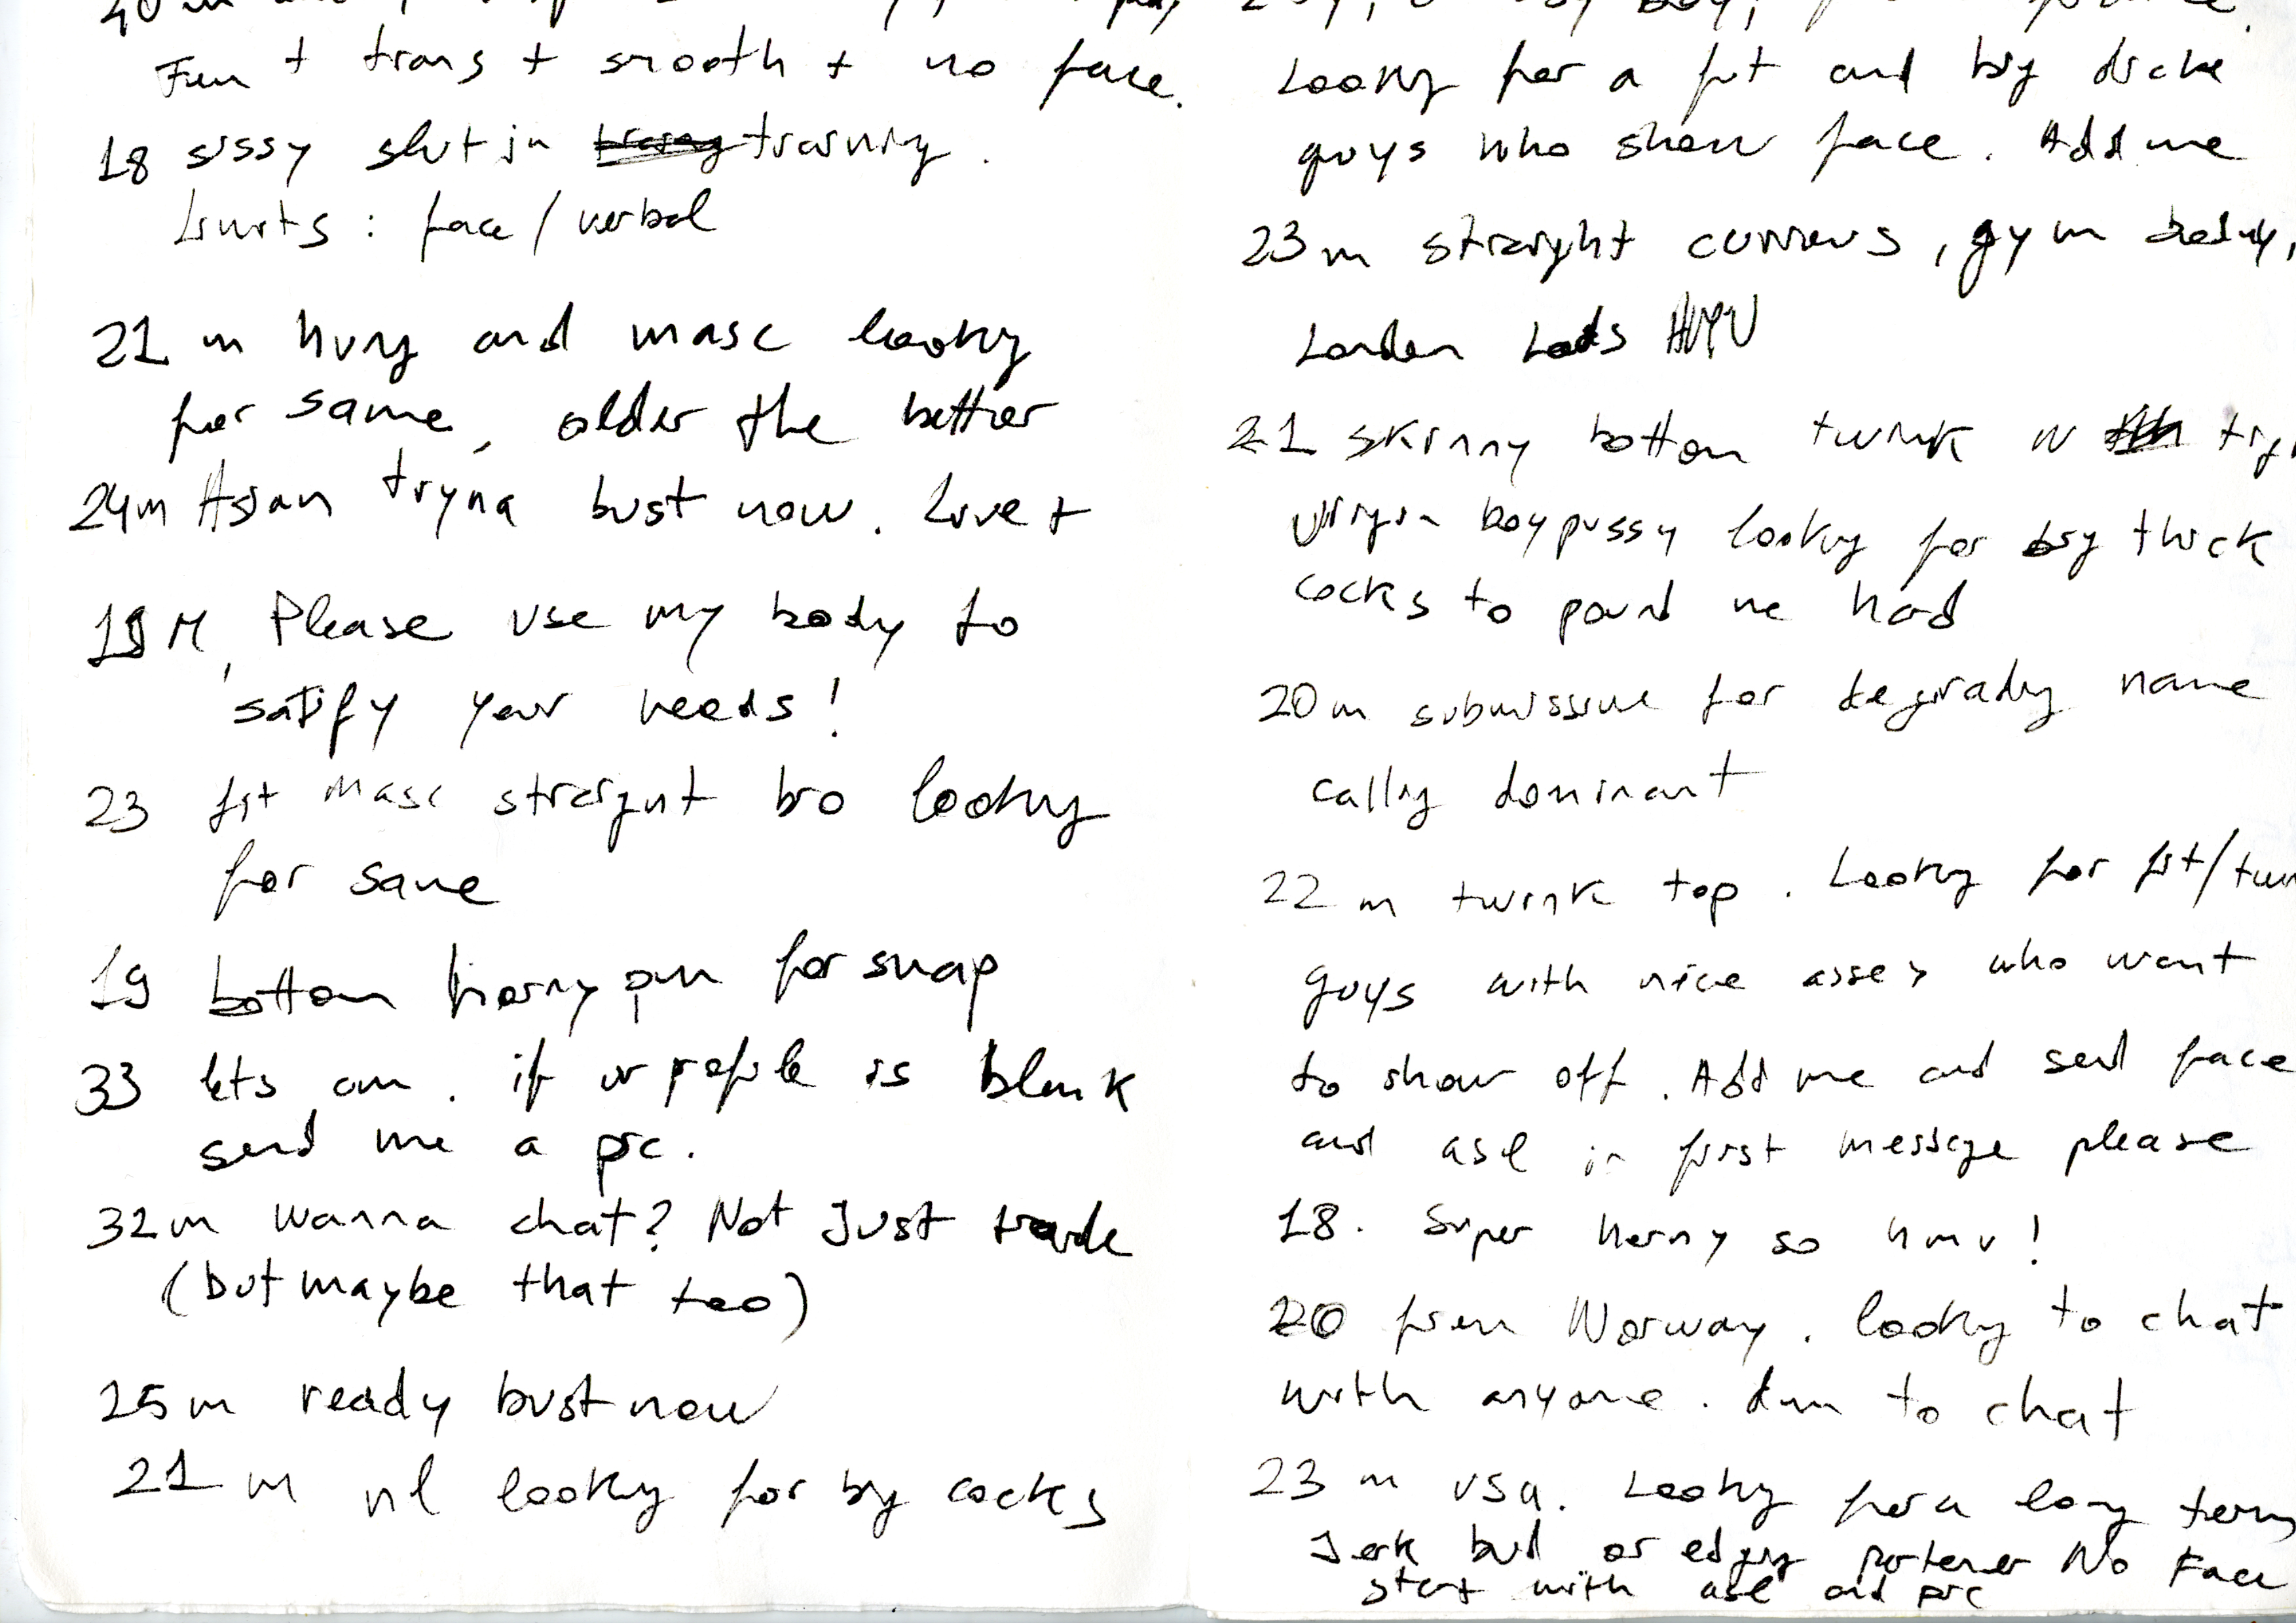 Fun + trans + smooth + no face.
18 sissy slut in training.
Limits : face / verbal
21 m hung and masc looking
for same, older the better
24m Asian tryna bust now. Live +
19 M, Please use my body to
satify your needs!
23 fit masc straight bro looking
for same
19 bottom horny pm for snap
33 lets cum. if ur profile is blank
send me a pic.
32 m wanna chat? Not Just trade
(but maybe that too)
25 m ready bust now
21 m nl looking for big cocks
Looking for a fit and big dick
guys who show face. Add me
23 m straight curious, gym body,
London Lads HMU
21 skinny bottom twink w
virgin boypussy looking for big thick
cocks to pound me hard
20 m submissive for degrading name
calling dominant
22 m twink top. Looking for fit/
guys with nice asses who want
to show off. Add me and send face
and asl in first message please
18. Super horny so hmu!
20 from Norway. looking to chat
with anyone. dm to chat
23 m usa. Looking for a long term
Jerk bud or edging partener No Face
start with asl and pic